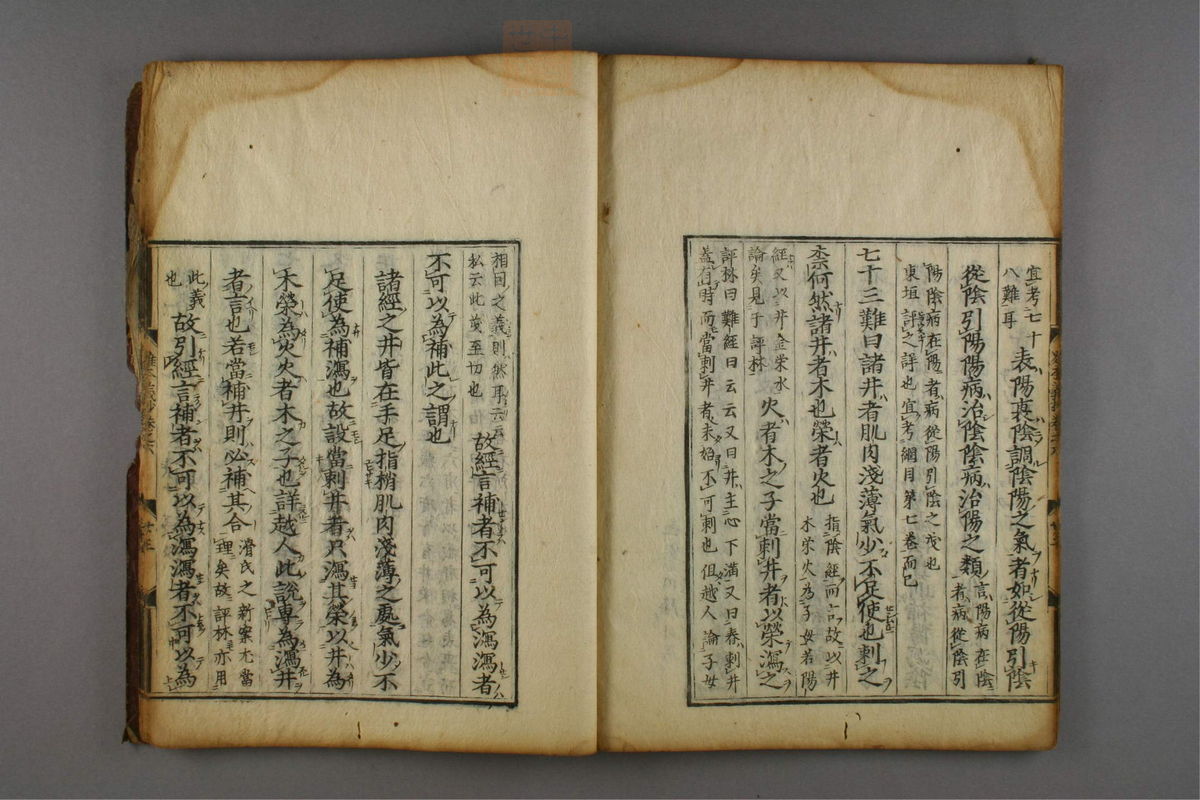 宜考七十
八難耳
表陽裏陰調陰陽之氣者如從陽引陰
從陰引陽陽病治陰陰病治陽之類
言陽病在陰
者病從陰引
陽陰病在陽者病從陽引陰之義也
東垣評之詳也宜考綱目第七卷而已
七十三難曰諸井者肌肉淺薄氣少不足使也刺之
柰何然諸井者木也滎者火也
指陰經而言故以井
木滎火為子母若陽
經又以井金滎水
論矣見于評林
火者木之子當刺井者以滎瀉之
評林曰難經曰云云又曰井主心下滿又曰春刺井
蓋有時而當刺井者未始不可刺也但越人論子母
相因之義則然耳云云
私云此義至切也
故經言補者不可以為瀉瀉者
不可以為補此之謂也
諸經之井皆在手足指梢肌肉淺薄之處氣少不
足使為補瀉也故設當刺井者只瀉其滎以井為
木滎為火火者木之子也詳越人此說專為瀉井
者言也若當補井則必補其合
滑氏之新案尤當
理矣故評林亦用
此義
也
故引經言補者不可以為瀉瀉者不可以為